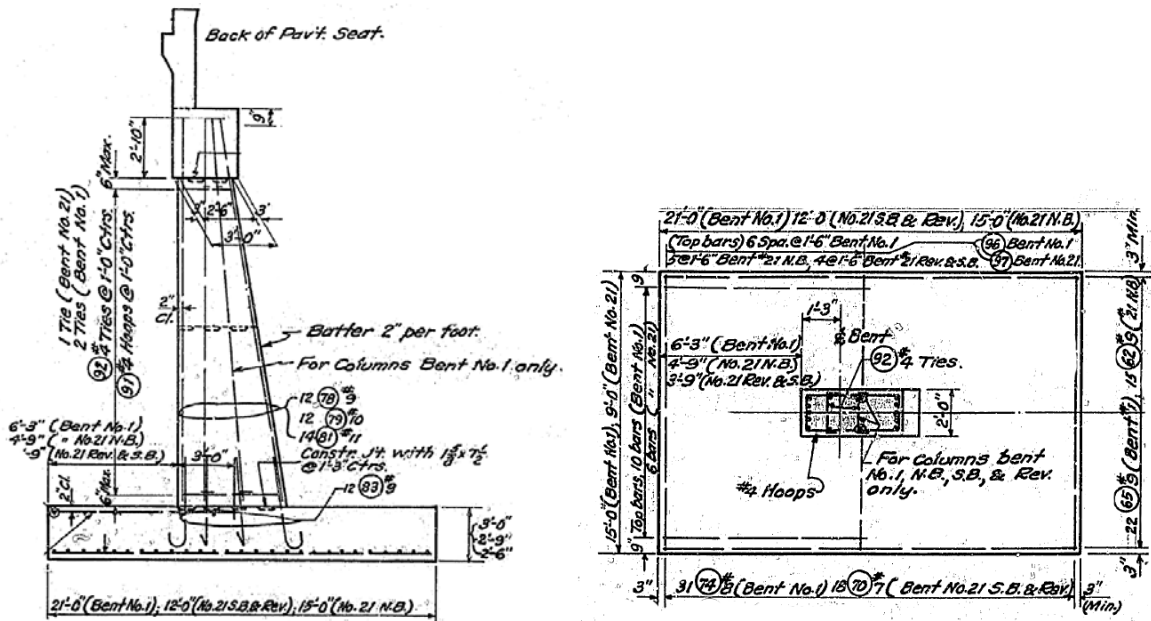 Back of Pav't. Seat.
9"
2'-10"
6" Max.
1 Tie (Bent No. 21)
2 Ties (Bent No. 1)
92 #4 Ties @ 1'-0" Ctrs.
91 #4 Hoops @ 1'-0" Ctrs.
3" 2'-6" 3"
3'-0"
2"
Cl.
Batter 2" per foot.
For Columns Bent No. 1 only.
12 78 #9
12 79 #10
14 81 #11
6'-3" (Bent No. 1)
4'-9" ( " No. 21 N.B.)
(No. 21 Rev. & S.B.)
3'-0"
Constr. Jt. with
@ 1'-3" Ctrs.
2" Cl.
6" Max.
12 83 #9
3'-0"
2'-9"
2'-6"
21'-0" (Bent No. 1), 12'-0" (No. 21 S.B. & Rev.), 15'-0" (No. 21 N.B.)
21'-0" (Bent No. 1) 12'-0" (No. 21 S.B. & Rev.), 15'-0" (No. 21 N.B.)
(Top bars) 6 Spa. @ 1'-6" Bent No. 1 96 Bent No. 1
5 @ 1'-6" Bent #21 N.B. 4 @ 1'-6" Bent #21 Rev. & S.B. 97 Bent No. 21
3" Min.
15'-0" (Bent No. 1), 9'-0" (Bent No. 21)
9" Top bars, 10 bars (Bent No. 1) 9"
6 bars ( " No. 21)
1'-3"
Bent
6'-3" (Bent No. 1)
4'-9" (No. 21 N.B.)
3'-9" (No. 21 Rev. & S.B.)
92 #4 Ties.
2'-0"
#4 Hoops
For Columns bent
No. 1, N.B., S.B., & Rev.
only.
22 65 #9 (Bent #1) 15 62 #9 (21 N.B.)
3"
3" 31 74 #8 (Bent No. 1) 18 70 #7 (Bent No. 21 S.B. & Rev.) 3"
(Min.)